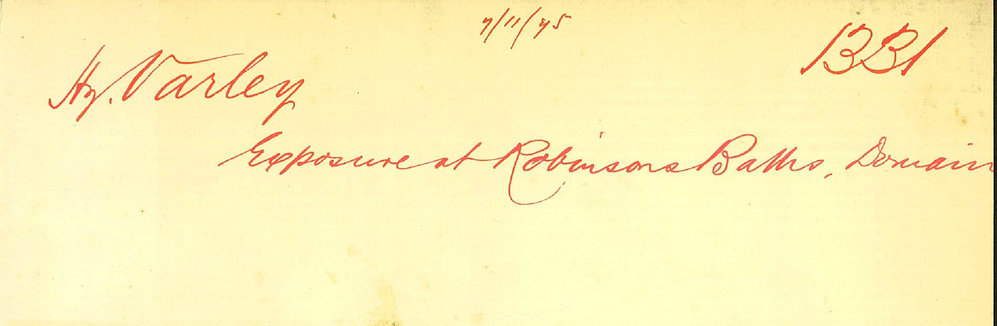 7/11/95
1331
Hy. Varley
Exposure at Robinsons Baths, Domain